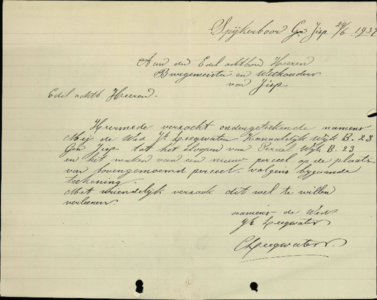 Spijkerboor Gem Jisp 24/6 1937
Aan den Edel achtbare Heeren
Burgemeester en Wethouders
van Jisp
Edel achtb Heeren.
Hiermede verzoekt ondergeteekende namens
Mej de Wed Jb Leegwater Kanaaldijk Wijk B. 23
Gem Jisp tot het sloopen van Perceel Wijk B. 23
en het maken van een nieuw perceel op de plaats
van bovengenoemd perceel. volgens bijgaande
teekening.
Met vriendelijk verzoek dit wel te willen
verleenen.
namens de Wed
Jb Leegwater
C Leegwater